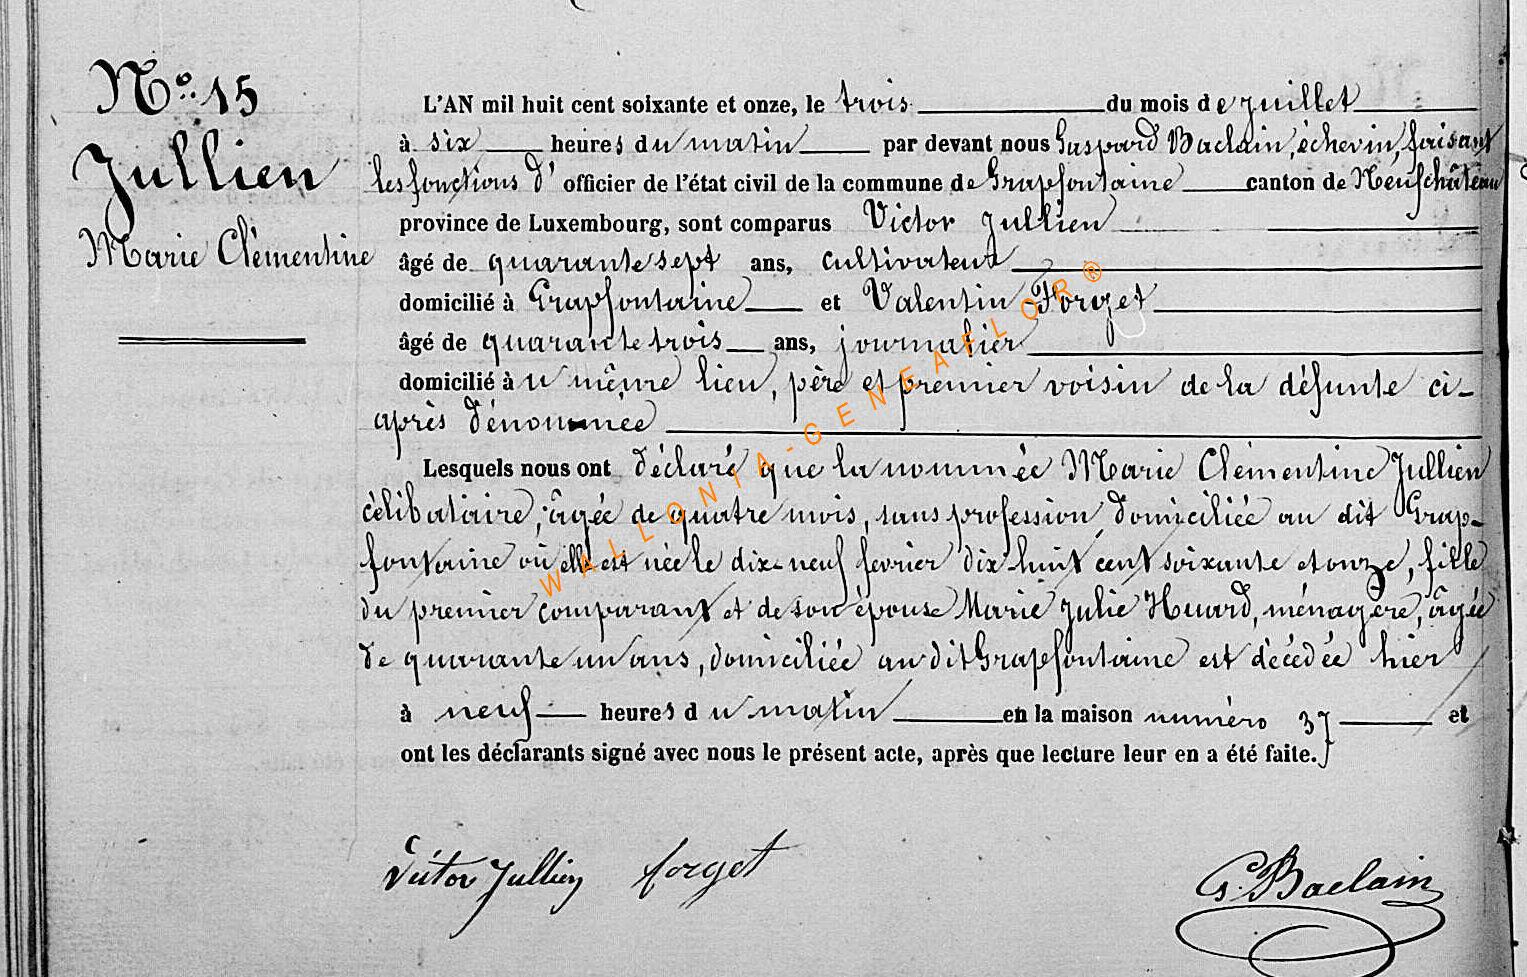 No 15
Jullien
Marie Clémentine
L'AN mil huit cent soixante et onze, le trois du mois de juillet
à six heures du matin par devant nous Gaspard Baclain, échevin, faisant
les fonctions d' officier de l'état civil de la commune de Grapfontaine canton de Neufchâteau
province de Luxembourg, sont comparus Victor Jullien
âgé de quarante sept ans, cultivateur
domicilié à Grapfontaine et Valentin Forget
âgé de quarante trois ans, journalier
domicilié à u même lieu, père et premier voisin de la défunte ci-
après dénommée
Lesquels nous ont déclaré que la nommée Marie Clémentine Jullien
célibataire, âgée de quatre mois, sans profession, domiciliée au dit Grap-
fontaine où elle est née le dix-neuf fevrier dix huit cent soixante et onze, fille
du premier comparant et de son épouse Marie Julie Huard, ménagère, âgée
de quarante un ans, domiciliée au dit Grapfontaine est décédée hier
à neuf heures du matin en la maison numéro 37 et
ont les déclarants signé avec nous le présent acte, après que lecture leur en a été faite.
Victor Jullien forget
G. Baclain
WALLONIA-GENEAFLOR®